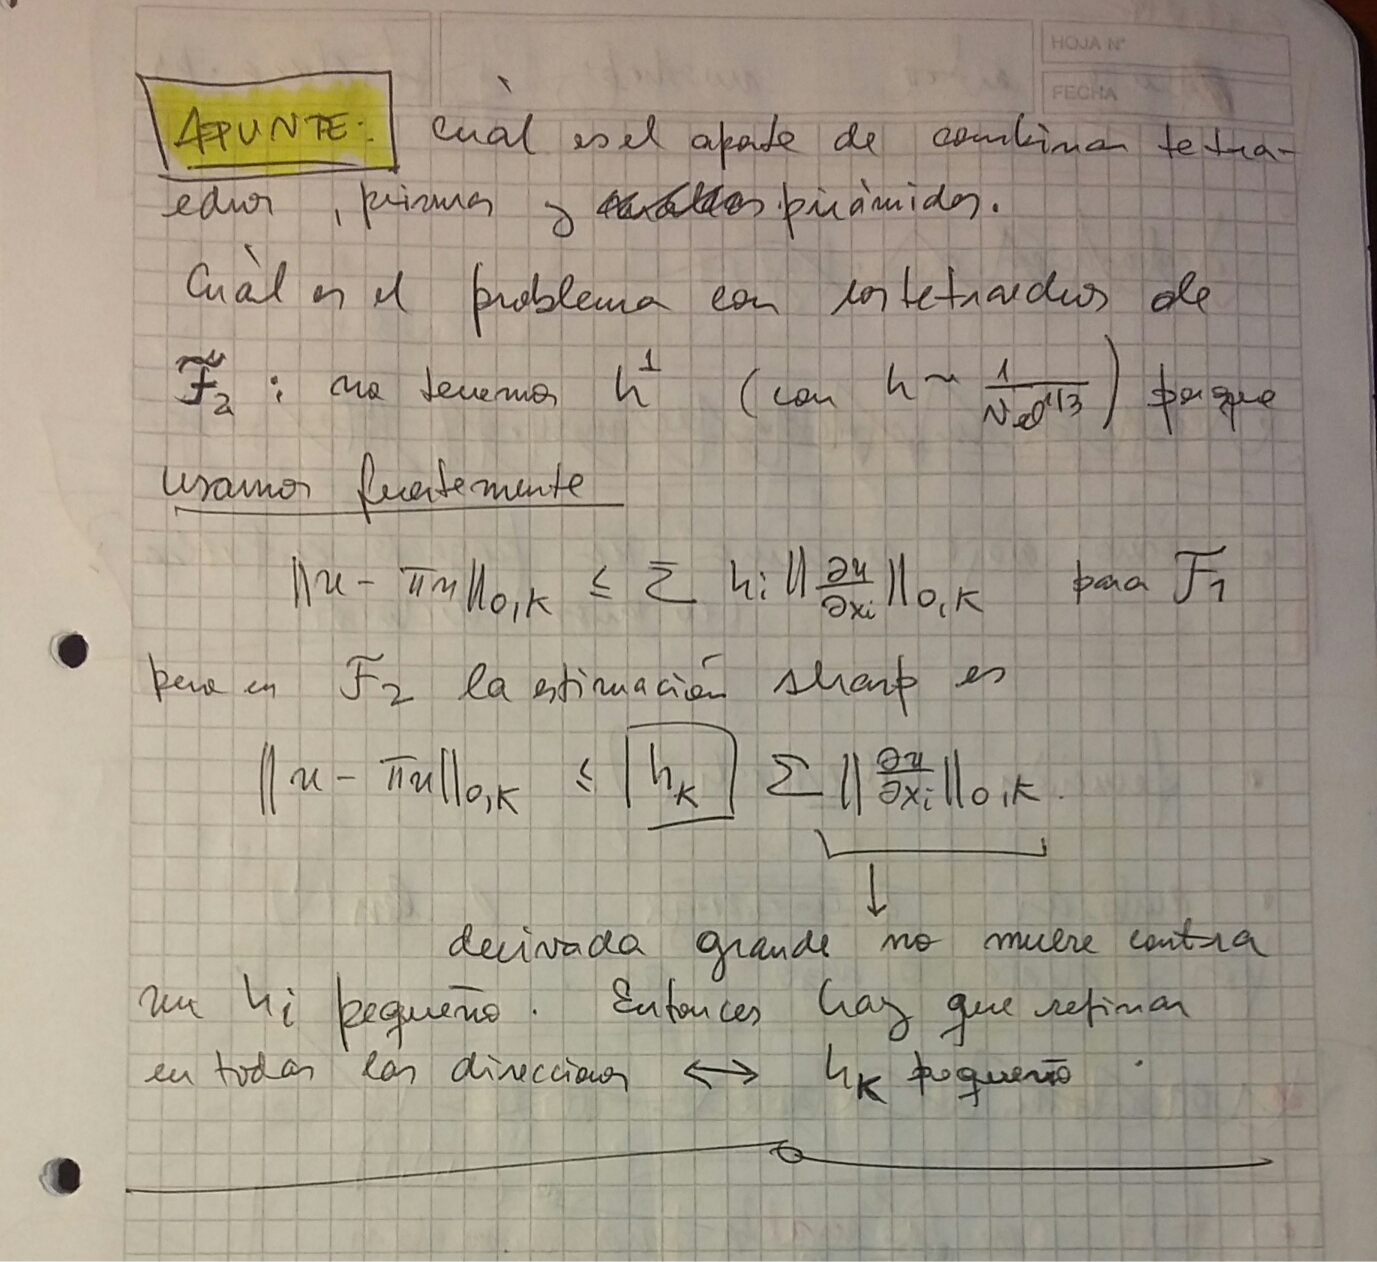 HOJA Nº
FECHA
APUNTE: cuàl es el aporte de combinar tetra-
edros, prismas y pirámides.
Cuàl es el problema con los tetraedros de
F̃₂ : no tenemos h¹ (con h ~ 1/Nel^{1/3}) porque
usamos fuertemente
||u - πu||₀,K ≤ Σ hᵢ ||∂u/∂xᵢ||₀,K para F₁
pero en F₂ la estimación sharp es
||u - πu||₀,K ≤ h_K Σ ||∂u/∂xᵢ||₀,K.
↓
derivada grande no muere contra
un hᵢ pequeño. Entonces hay que refinar
en todas las direcciones ↔ h_K pequeño.